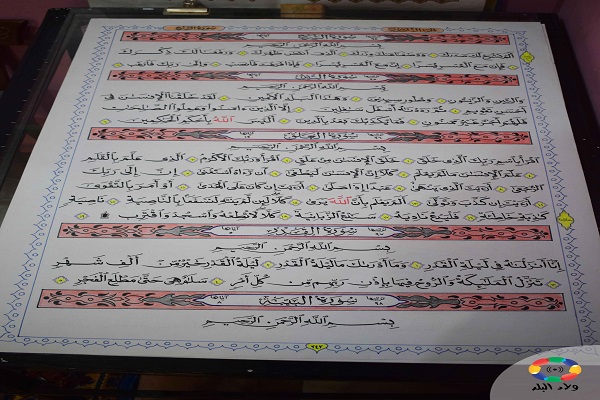 سورة الشرح
بسم الله الرحمن الرحيم
ألم نشرح لك صدرك ووضعنا عنك وزرك الذي أنقض ظهرك ورفعنا لك ذكرك
فإن مع العسر يسرا إن مع العسر يسرا فإذا فرغت فانصب وإلى ربك فارغب
سورة التين
بسم الله الرحمن الرحيم
والتين والزيتون وطور سينين وهذا البلد الأمين لقد خلقنا الإنسن في
أحسن تقويم ثم رددنه أسفل سفلين إلا الذين ءامنوا وعملوا الصلحت
فلهم أجر غير ممنون فما يكذبك بعد بالدين أليس الله بأحكم الحكمين
سورة العلق
بسم الله الرحمن الرحيم
اقرأ باسم ربك الذي خلق خلق الإنسن من علق اقرأ وربك الأكرم الذي علم بالقلم
علم الإنسن ما لم يعلم كلا إن الإنسن ليطغى أن رءاه استغنى إن إلى ربك
الرجعى أرءيت الذي ينهى عبدا إذا صلى أرءيت إن كان على الهدى أو أمر بالتقوى
أرءيت إن كذب وتولى ألم يعلم بأن الله يرى كلا لئن لم ينته لنسفعا بالناصية ناصية
كذبة خاطئة فليدع ناديه سندع الزبانية كلا لا تطعه واسجد واقترب
سورة القدر
بسم الله الرحمن الرحيم
إنا أنزلنه في ليلة القدر وما أدرىك ما ليلة القدر ليلة القدر خير من ألف شهر
تنزل الملئكة والروح فيها بإذن ربهم من كل أمر سلم هي حتى مطلع الفجر
سورة البينة
بسم الله الرحمن الرحيم
ولاد البلد